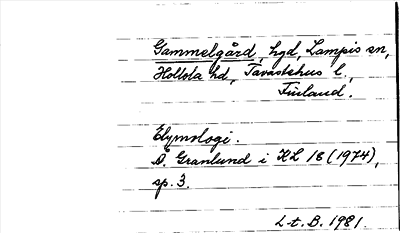 Gammelgård, hgd, Lampis sn,
Hollola hd, Tavastehus l.,
Finland.
Etymologi.
S. Granlund i KL 18 (1974),
sp. 3.
L-t. B. 1981.